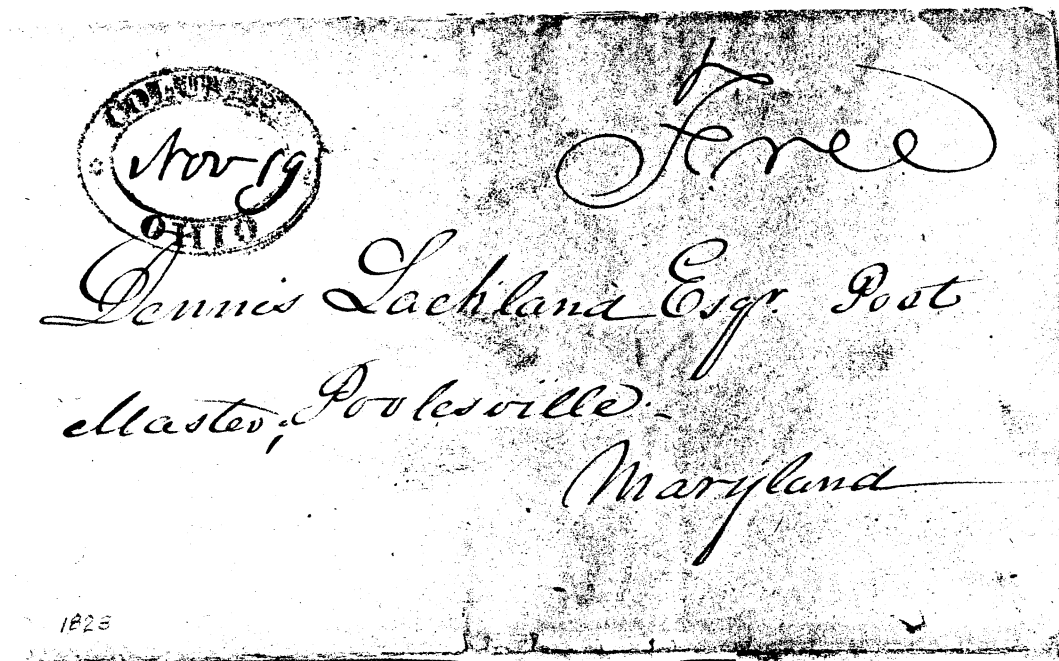 COLUMBUS
Nov 19
OHIO
Free
Dennis Lackland Esqr. Post
Master, Poolesville.
Maryland
1823